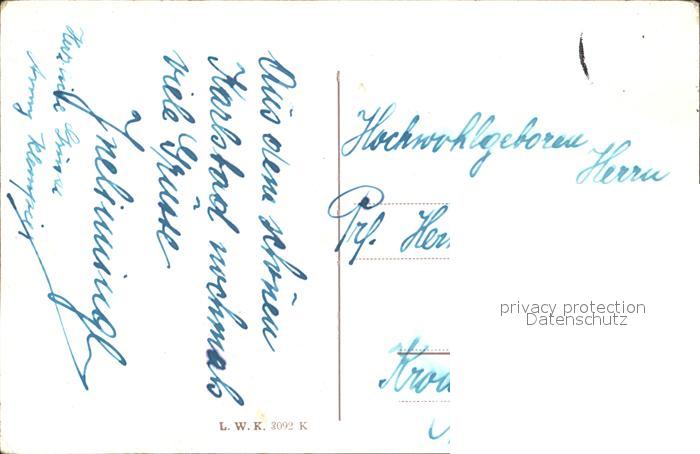 Aus dem schönen
Karlsbad nochmals
viele Grüsse
Herzliche Grüsse
Hochwohlgeboren
Herrn
Prf. Her
Kron
privacy protection
Datenschutz
L. W. K. 3092 K